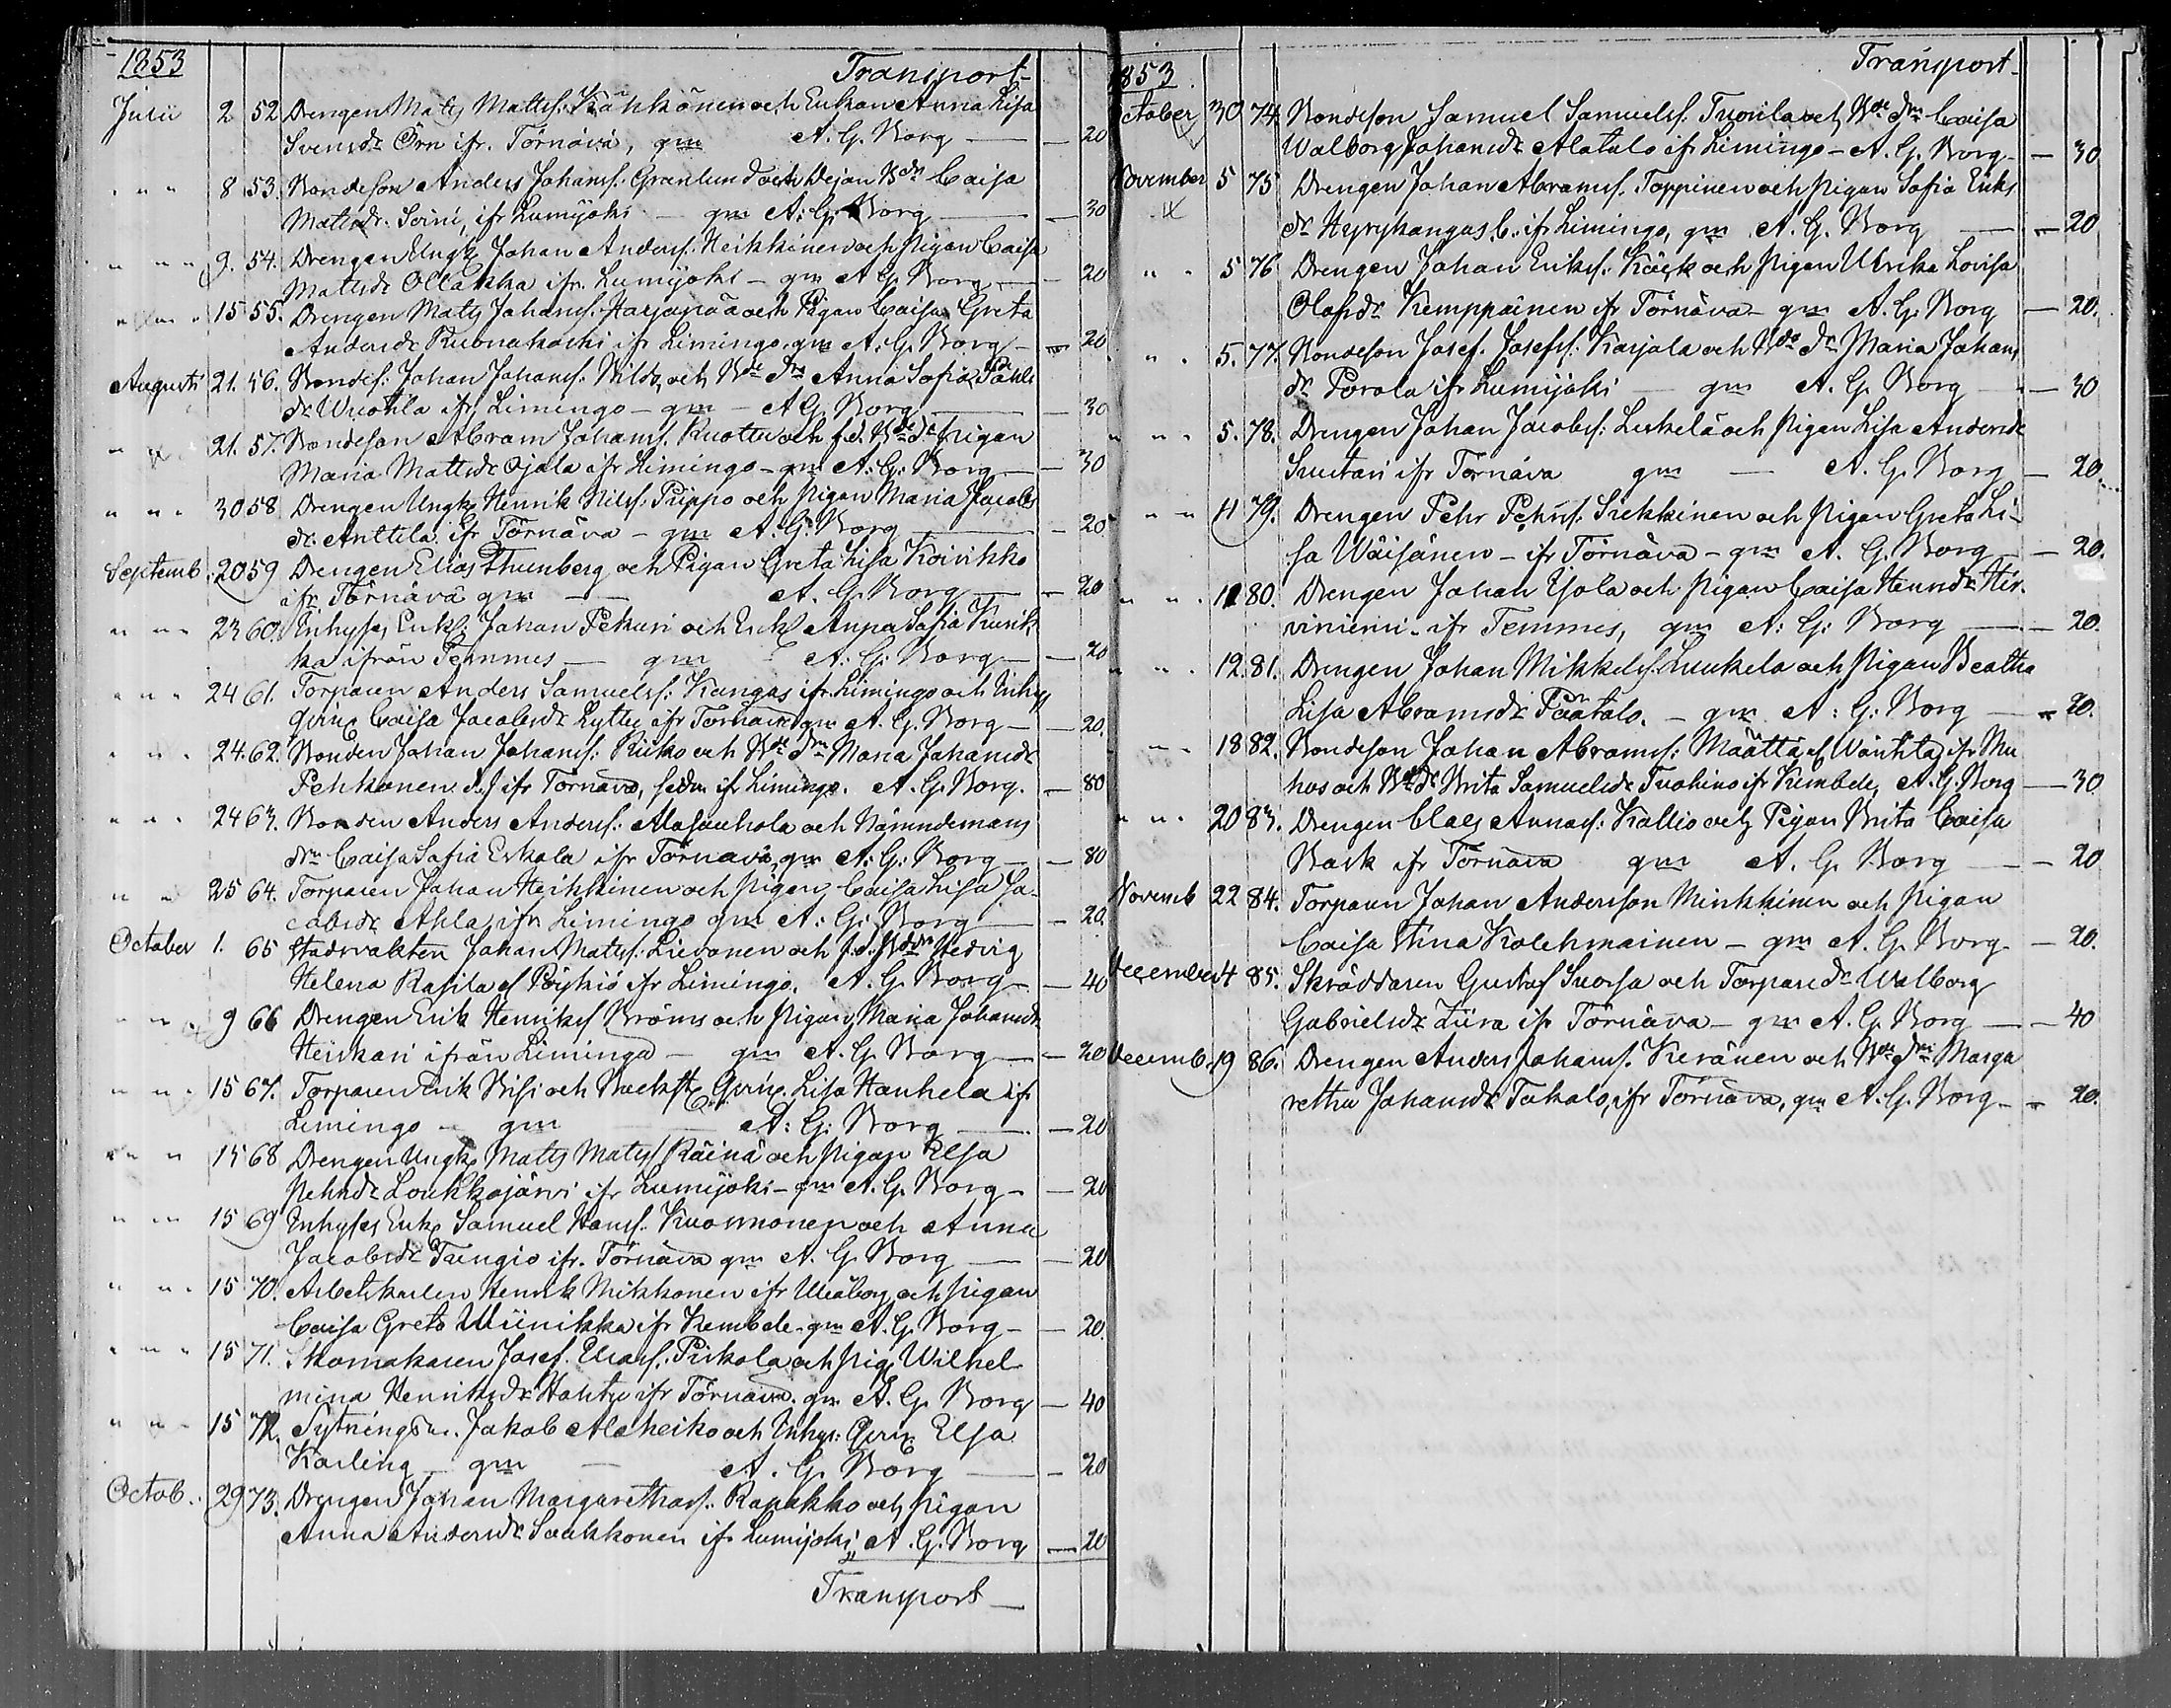 1853
Transport
Julii 2 52 Drengen Mats Matss: Kähkönen och Enkan Anna Lisa
Svensdr Örn ifr. Törnävä, gm A. G. Borg — 20
" " " 8 53. Bondeson Anders Johanss. Granlund och Dejan Bdr Caisa
Mattsdr. Soini, ifr Lumijoki — gm A: G: Borg — 30
" " " 9. 54. Drengen Ungk Johan Anderss. Heikkinen och Pigan Caisa
Mattsdr Ollakka ifr. Lumijoki — gm A G. Borg — 20
" " " 15 55. Drengen Mats Johanss. Harjapää och Pigan Caisa Greta
Andersdr Ruonakoski ifr Limingo. gm A. G. Borg — 20
Augusti 21. 56. Bondes: Johan Johanss. Nildo, och Bde Dr Anna Sofia Påhls
dr Wuotila ifr Limingo — gm — A G. Borg — 30
" " 21. 57. Bondeson Abram Johanss. Ruottu och f.d. Bde dr Pigan
Maria Mattsdr Ojala ifr Limingo — gm A: G: Borg — 30
" " " 30 58 Drengen Ungk Henrik Nilss. Piippo och Pigan Maria Jacobs
dr. Anttila ifr Törnäva — gm A. G. Borg — 20
Septemb. 20 59 Drengen Elias Thunberg och Pigan Greta Lisa Koivikko
ifr. Törnävä gm — A. G. Borg — 20
" " " 23 60. Inhyses Enkl: Johan Pekuri och Enk Anna Sofia Kurik
ka ifrån Temmes — gm A: G: Borg — 20
" " " 24 61. Torparen Anders Samuelss: Kangas ifr Limingo och Inhys
qvinc Caisa Jacobsdr Lyttu ifr Törnävä gm A. G. Borg — 20.
" " " 24. 62. Bonden Johan Johanss: Ricko och Bde Dr Maria Johansdr
Pehkonen ifr Törnävä, sedn ifr Limingo. A. G. Borg. — 80
" " " 24 63. Bonden Anders Anderss: Alasauhola och Nämndemans
Dr Caisa Sofia Eskola ifr Törnävä, gm A: G: Borg — 80
" " 25 64. Torparen Johan Heikkinen och Pigan Caisa Lisa Ja-
cobsdr Ahla ifr Limingo gm A: G: Borg — 20.
October 1. 65 Stadsvakten Johan Matss: Lievonen och f.d. Bdr Hedvig
Helena Rasila el Pöyhiö ifr Limingo. A. G. Borg — 40
" " 9 66 Drengen Erik Henrikss Broms och Pigan Maria Johansdr
Heiskari ifrån Limingo — gm A. G. Borg — 20
" " " 15 67. Torparen Erik Bisi och Backst Qvinc. Lisa Hanhela ifr
Limingo — gm A: G: Borg — 20
" " " 15 68 Drengen Ungk Matts Mats Räinä och Pigan Elsa
Pehrsdr Loukkojärvi ifr Lumijoki — gm A. G. Borg — 20
" " " 15 69 Inhyses Enk Samuel Hanss. Kuosmonen och Anna
Jacobsdr Tungio ifr. Törnävä gm A. G. Borg — 20
" " " 15 70. Arbetskarlen Henrik Mikkonen ifr Uleåborg och Pigan
Caisa Greta Wiinikka ifr Kembele gm A. G. Borg — 20.
" " " 15 71. Skomakaren Josef Eliass. Piskola och Pig Wilhel
mina Henriksdr Hahtu ifr Törnävä. gm A. G. Borg — 40
" " " 15 72. Sytningsm. Jakob Alaheiko och Inhys: Qvinc. Elsa
Karling — gm — A. G. Borg — 20
Octob. 29 73. Drengen Johan Margarethas. Rapakko och Pigan
Anna Andersdr Saukkonen ifr Lumijoki, A. G. Borg — 20
Transport —
1853.
Transport
October 30 74. Bondeson Samuel Samuelss. Tuorila och Bde Dr Caisa
Walborg Johansdr Alatalo ifr Limingo — A. G. Borg — 30
November 5 75 Drengen Johan Abramss. Toppinen och Pigan Sofia Eriks
dr Hyrykangas, ifr Limingo, gm A. G. Borg — 20
" " 5 76 Drengen Johan Erikss. Käck och Pigan Ulrika Lovisa
Olofsdr Kemppainen ifr Törnävä — gm A. G. Borg — 20.
" " 5. 77. Bondeson Josef Josefss. Karjala och Bde Dr Maria Johans
dr Porola ifr Lumijoki — gm A. G. Borg — 30
" " " 5. 78. Drengen Johan Jacobss: Leskelä och Pigan Lisa Andersdr
Suutari ifr Törnävä gm — A. G. Borg — 20.
" " 11 79. Drengen Pehr Pehrss. Siekkinen och Pigan Greta Li-
sa Wäisänen — ifr Törnävä — gm A. G. Borg — 20.
" " " 12 80. Drengen Johan Yjola och Pigan Caisa Henrdr Hir-
viniemi — ifr Temmes, gm A: G: Borg — 20.
" " " 12. 81. Drengen Johan Mikkelss. Luukela och Pigan Beatha
Lisa Abramsdr Paatalo. — gm A: G: Borg — 20.
" " 18 82. Bondeson Johan Abramss: Määtta el Wänttilä ifr Mu
hos och Bde Dr Brita Samuelsdr Tuohino ifr Kembele, A. G. Borg — 30
" " " 20 83. Drengen Claes Annass: Kallio och Pigan Brita Caisa
Back ifr Törnävä gm A. G. Borg — 20
Novemb 22 84. Torparen Johan Andersson Minkkinen och Pigan
Caisa Stina Kolehmainen — gm A. G. Borg — 20.
December 4 85. Skräddaren Gustaf Suorsa och Torparedr Walborg
Gabrielsdr Ziira ifr Törnävä — gm A. G. Borg — 40
Decemb. 19 86. Drengen Anders Johanss. Keränen och Bde Dr Marga
retha Johansdr Takalo, ifr Törnävä, gm A. G. Borg — 20.